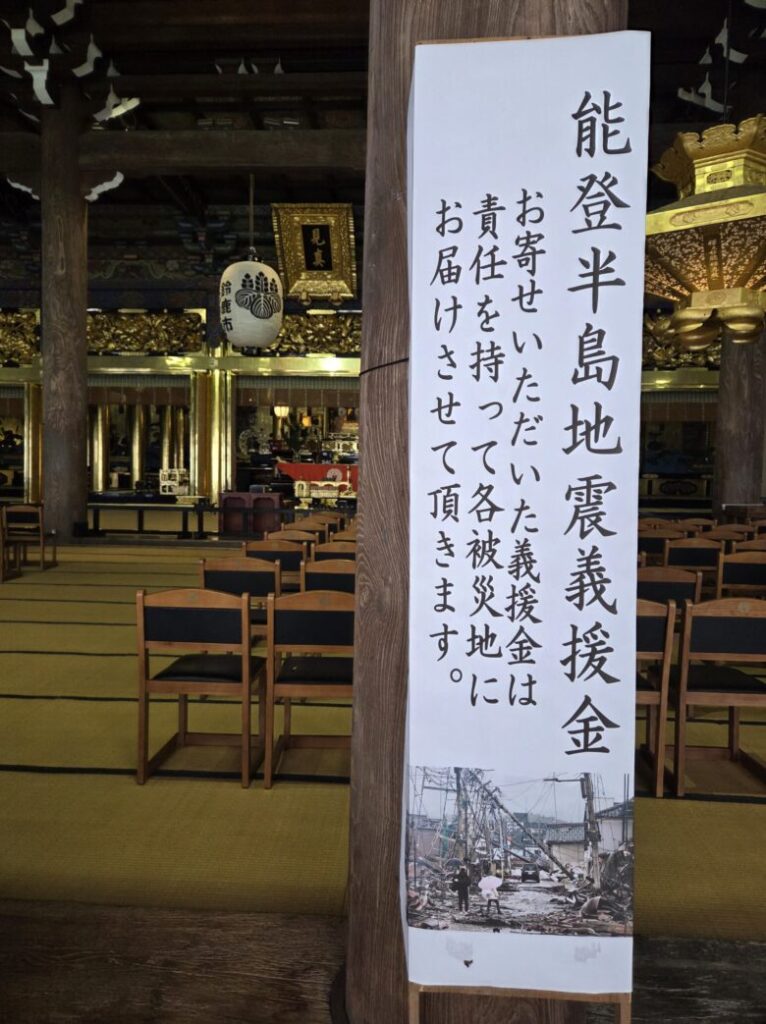 能登半島地震義援金
お寄せいただいた義援金は
責任を持って各被災地に
お届けさせて頂きます。
見真
鈴鹿市